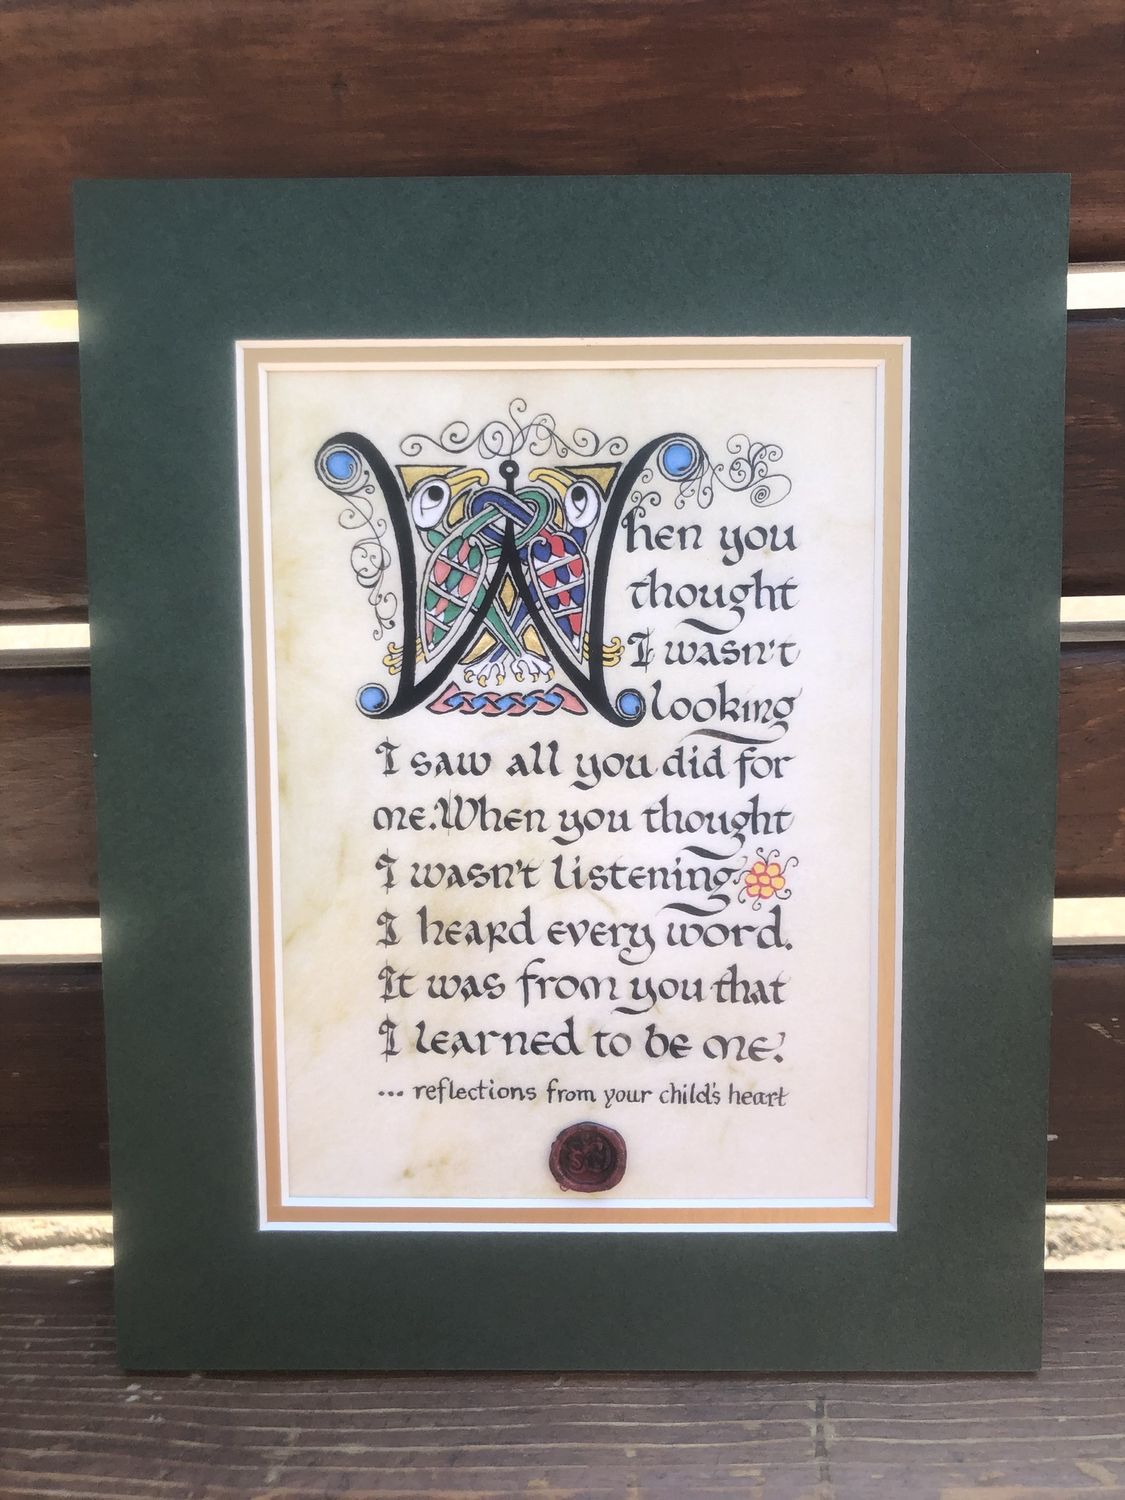 When you
thought
I wasn't
looking
I saw all you did for
me. When you thought
I wasn't listening
I heard every word.
It was from you that
I learned to be me.
... reflections from your child's heart